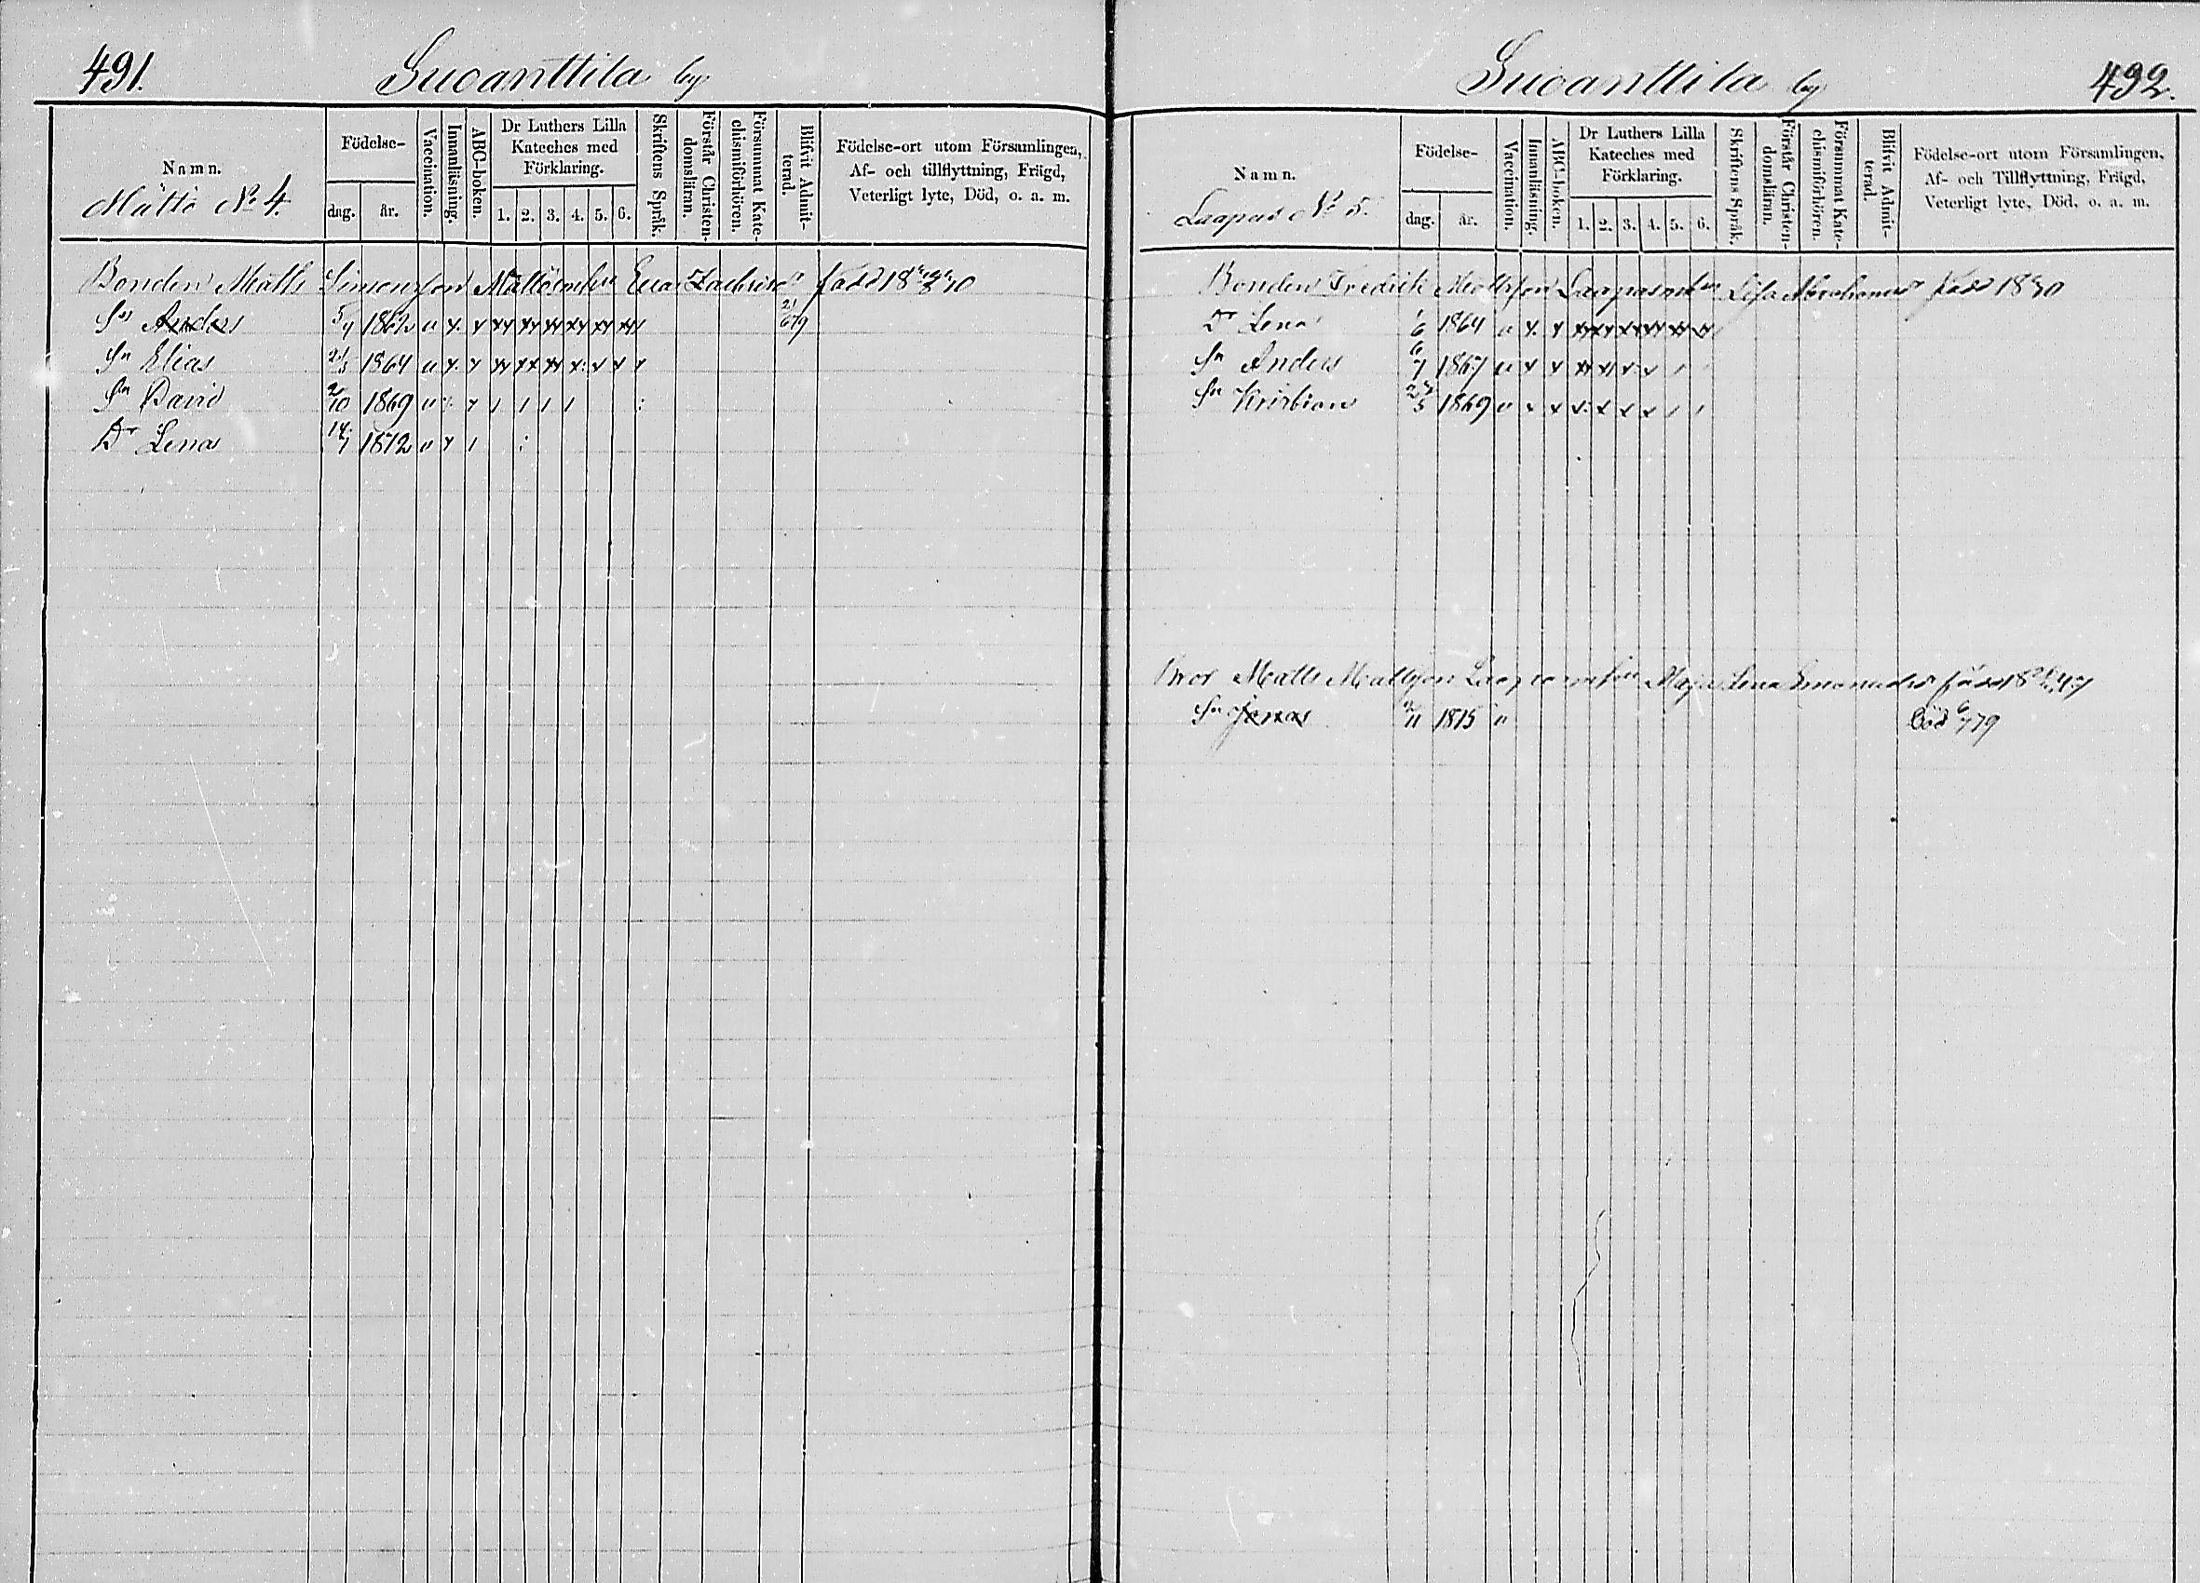 491.
Suoanttila by
Namn.
Mättö No 4.
Födelse-
dag.
år.
Vaccination.
Innanläsning.
ABC-boken.
Dr Luthers Lilla
Kateches med
Förklaring.
1. 2. 3. 4. 5. 6.
Skriftens Språk.
Förstår Christen-
domsläran.
Försummat Kate-
chismiförhören.
Blifvit Admit-
terad.
Födelse-ort utom Församlingen,
Af- och tillflyttning, Frägd,
Veterligt lyte, Död, o. a. m.
Bonden Matts Simonsson Mättö Eva född
Sn Anders 5/4 1862 21/6 79
Sn Elias 1864
Sn David 2/10 1869
Dr Lena 14/1 1872
Suoanttila by
492.
Namn.
Laapas No 5.
Födelse-
dag.
år.
Vaccination.
Innanläsning.
ABC-boken.
Dr Luthers Lilla
Kateches med
Förklaring.
1. 2. 3. 4. 5. 6.
Skriftens Språk.
Förstår Christen-
domsläran.
Försummat Kate-
chismiförhören.
Blifvit Admit-
terad.
Födelse-ort utom Församlingen,
Af- och Tillflyttning, Frägd,
Veterligt lyte, Död, o. a. m.
Bonden Fredrik Mattsson Laapas Lisa född
Dr Lena 1/6 1864
Sn Anders 6/7 1867
Sn Kristian 1869
Bror Matts Mattsson Maja Lena
Sn Jonas 1875 Död 79